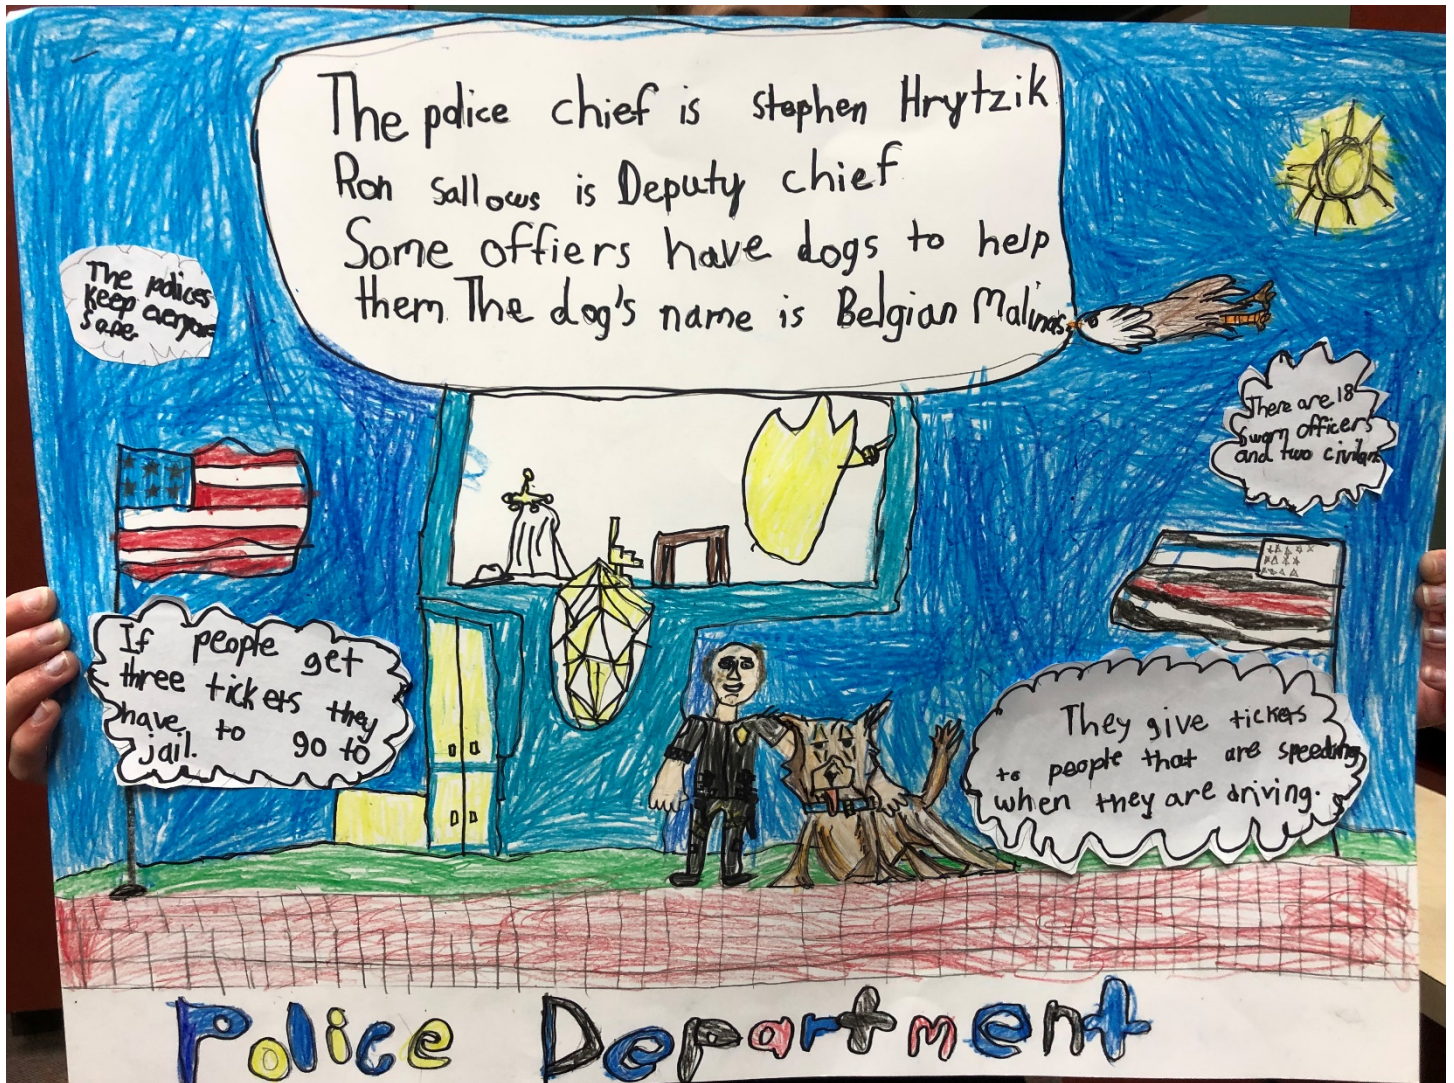 The police chief is stephen Hrytzik
Ron sallows is Deputy chief
Some offiers have dogs to help
them The dog's name is Belgian Malinois
The polices
keep everyone
safe.
There are 18
sworn officers
and two civilans
If people get
three tickets they
have to go to
jail.
They give tickets
to people that are speeding
when they are driving.
Police Department